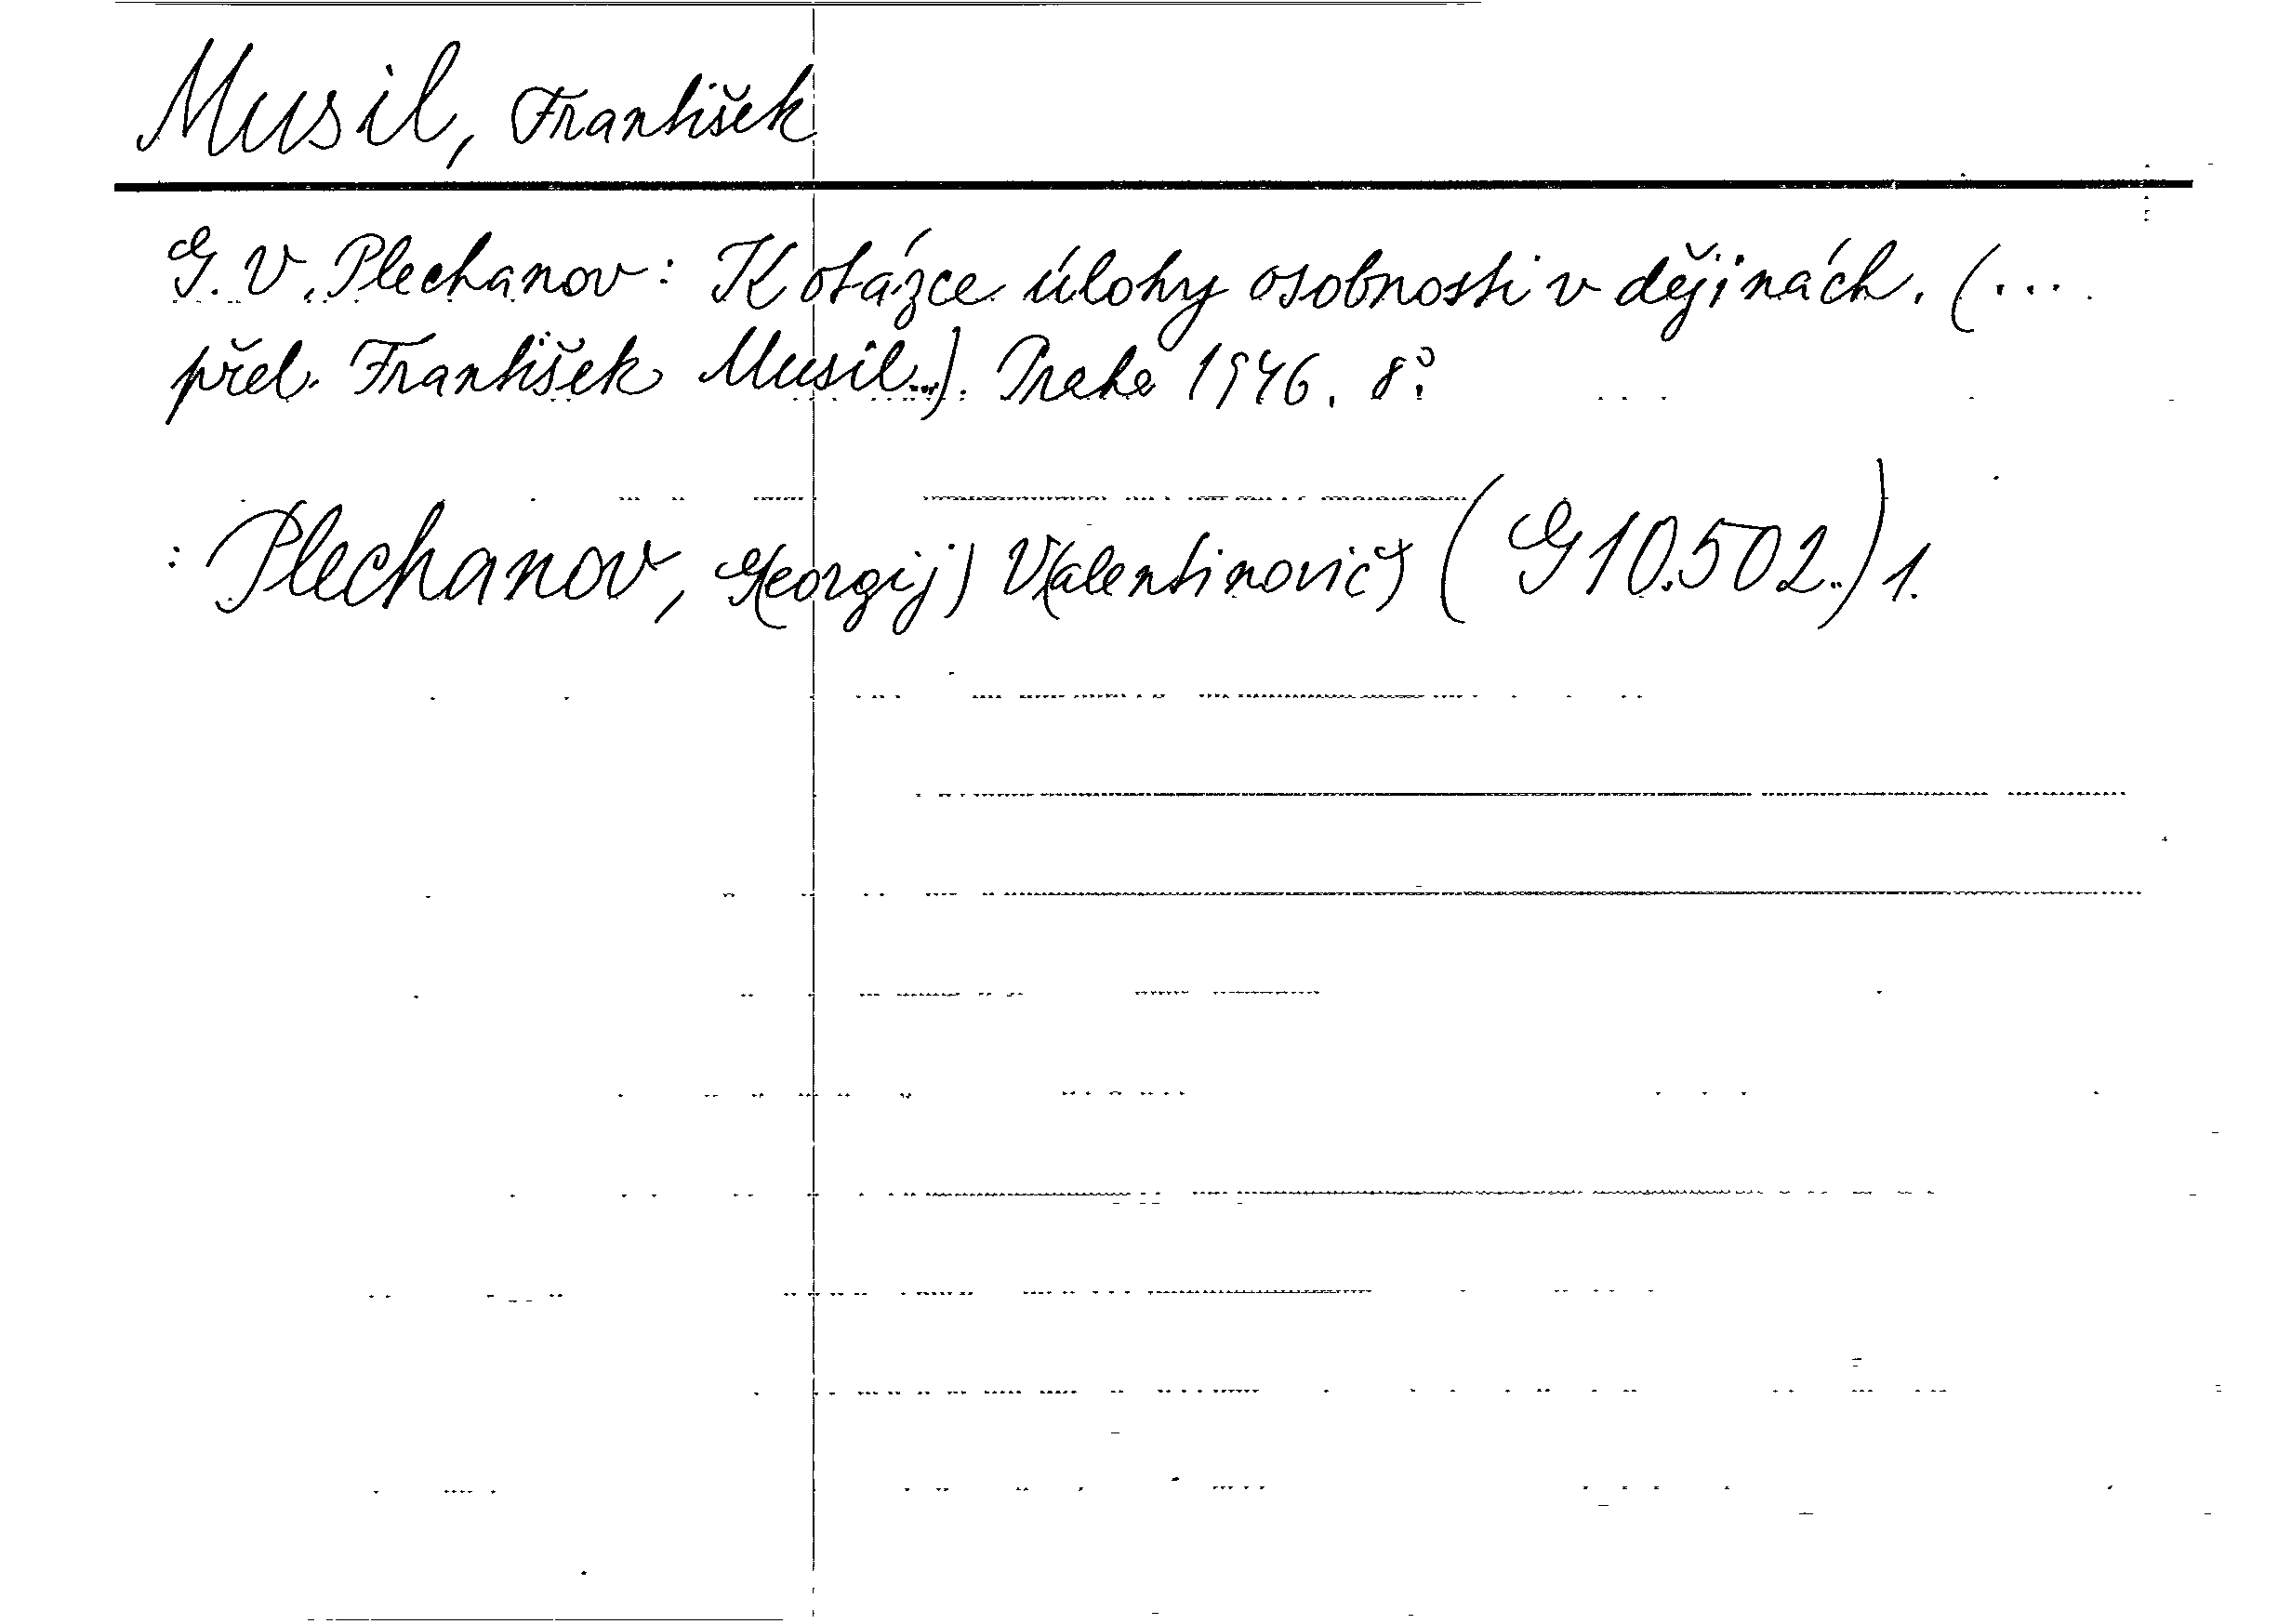 Musil, František
G. V. Plechanov: K otázce úlohy osobnosti v dějinách. (...
přel. František Musil...). Praha 1946. 8°.
: Plechanov, G(eorgij) V(alentinovič) (G 10.502.) 1.